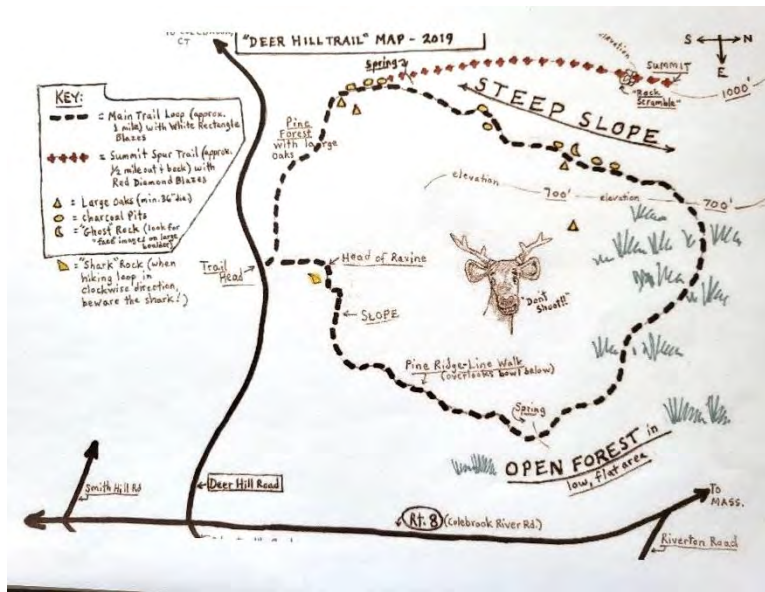 CT
"DEER HILL TRAIL" MAP - 2019
S N
E
elevation
SUMMIT
1000'
"Rock
Scramble"
Spring
STEEP SLOPE
KEY:
= Main Trail Loop (approx.
1 mile) with White Rectangle
Blazes
= Summit Spur Trail (approx.
1/2 mile out + back) with
Red Diamond Blazes
= Large Oaks (min. 36" dia.)
= Charcoal Pits
= "Ghost Rock" (look for
"face" images on large
boulder)
= "Shark" Rock (when
hiking loop in
clockwise direction,
beware the shark!)
Pine
Forest
with large
oaks
elevation 700' elevation 700'
Trail
Head
Head of Ravine
"Don't
Shoot!!"
SLOPE
Pine Ridge-Line Walk
(overlooks bowl below)
Spring
OPEN FOREST in
low, flat area
Smith Hill Rd
Deer Hill Road
Rt. 8 (Colebrook River Rd.)
To
MASS.
Riverton Road